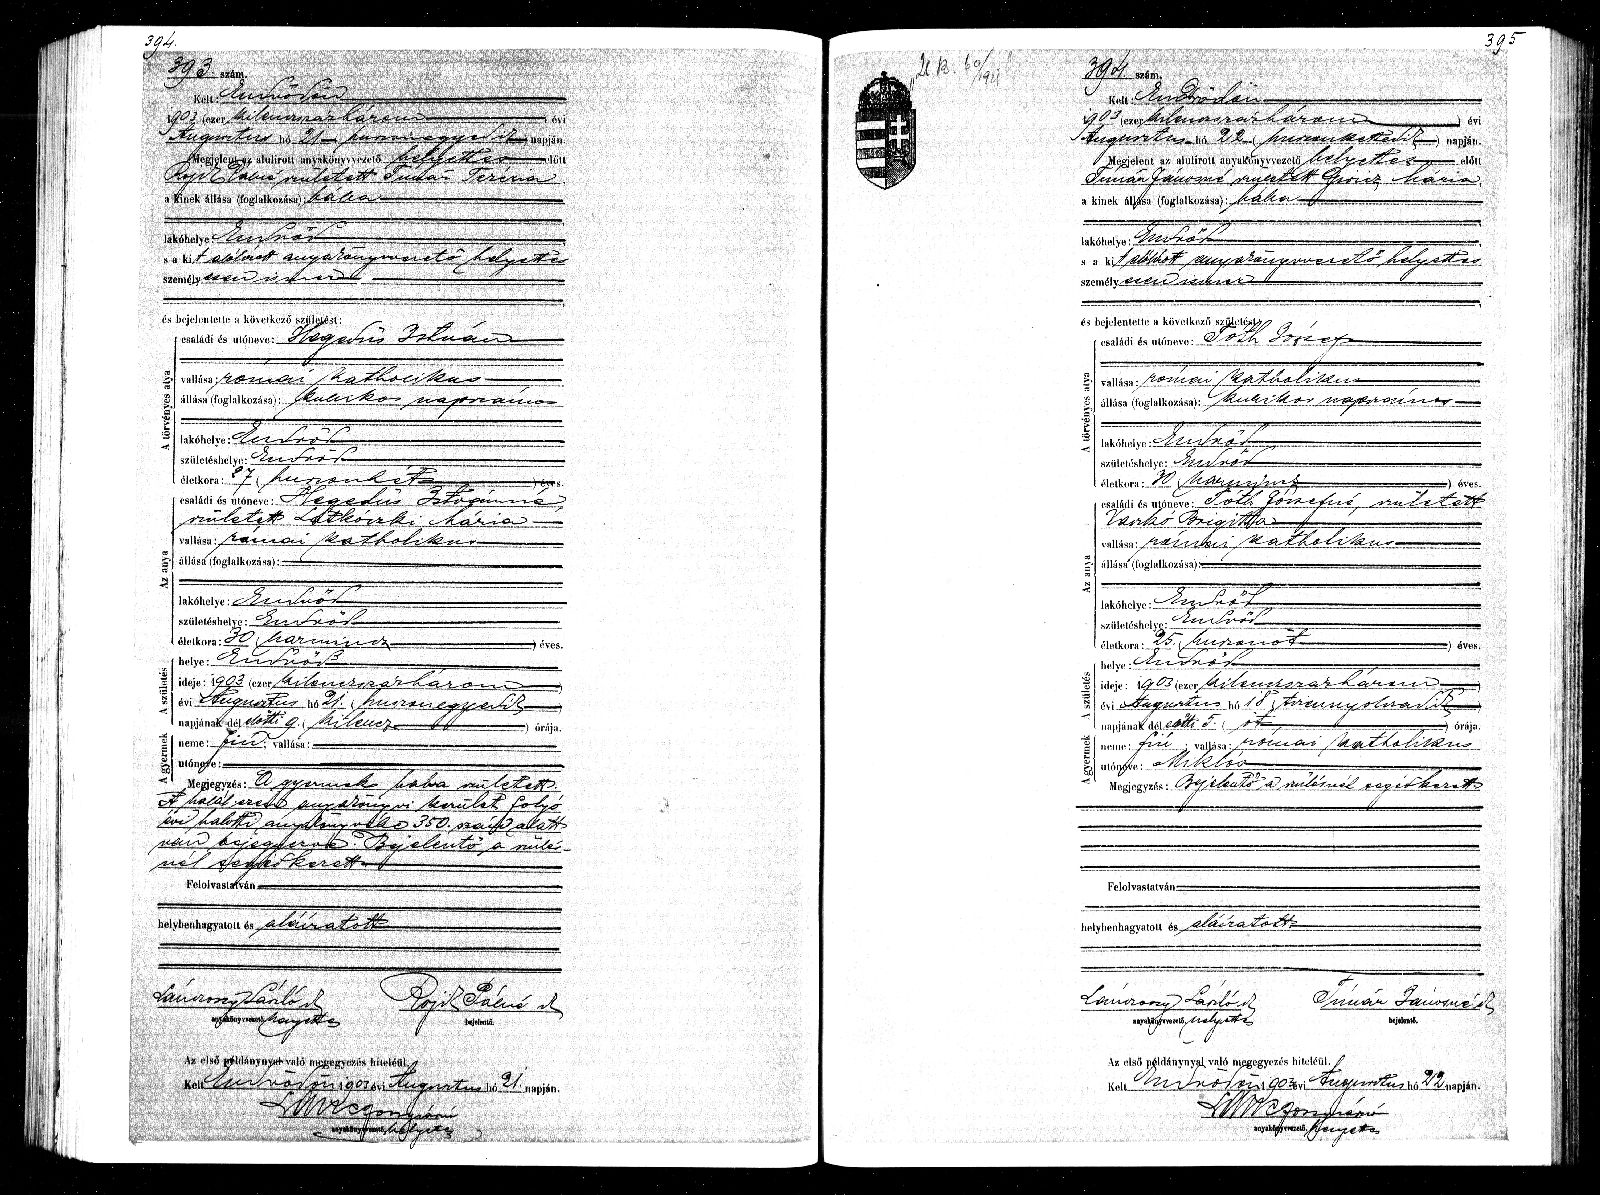 394.
393. szám.
Kelt: Endrődön
1903 (ezer kilenczszázhárom) évi
Augusztus hó 21 (huszonegyedik) napján.
Megjelent az alulirott anyakönyvvezető helyettes előtt
Pálné született Tímár Terézia
a kinek állása (foglalkozása): bába
lakóhelye: Endrőd
s a kit alólírott anyakönyvvezető helyettes
személyesen ismer
és bejelentette a következő születést:
A törvényes atya
családi és utóneve: Hegedüs István
vallása: római katholikus
állása (foglalkozása): kubikos napszámos
lakóhelye: Endrőd
születéshelye: Endrőd
életkora: 27 (huszonhét) éves.
Az anya
családi és utóneve: Hegedüs Istvánné,
született Látkóczki Mária
vallása: római katholikus
állása (foglalkozása):
lakóhelye: Endrőd
születéshelye: Endrőd
életkora: 30 (harmincz) éves.
A születés
helye: Endrőd
ideje: 1903 (ezer kilenczszázhárom)
évi Augusztus hó 21. (huszonegyedik)
napjának dél előtti 9. (kilencz) órája.
A gyermek
neme: fiú; vallása:
utóneve:
Megjegyzés: A gyermek halva született.
A halál eset anyakönyvi kerület folyó
évi halotti anyakönyvébe 350. szám alatt
van bejegyezve. Bejelentő a szülés-
nél segédkezett
Felolvastatván
helybenhagyatott és aláíratott
László Pálné
anyakönyvvezető, helyettes bejelentő.
Az első példánynyal való megegyezés hiteléül.
Kelt Endrődön 1903 évi Augusztus hó 21. napján.
anyakönyvvezető, helyettes
395
394. szám.
Kelt: Endrődön
1903 (ezer kilenczszázhárom) évi
Augusztus hó 22 (huszonkettedik) napján.
Megjelent az alulirott anyakönyvvezető helyettes előtt
Tímár Jánosné született Mária,
a kinek állása (foglalkozása): bába
lakóhelye: Endrőd
s a kit alólírott anyakönyvvezető helyettes
személyesen ismer
és bejelentette a következő születést:
A törvényes atya
családi és utóneve: Tóth József
vallása: római katholikus
állása (foglalkozása): kubikos napszámos
lakóhelye: Endrőd
születéshelye: Endrőd
életkora: 30 (harmincz) éves.
Az anya
családi és utóneve: Tóth Józsefné, született
Brigitta
vallása: római katholikus
állása (foglalkozása):
lakóhelye: Endrőd
születéshelye: Endrőd
életkora: 25. (huszonöt) éves.
A születés
helye: Endrőd
ideje: 1903 (ezer kilenczszázhárom)
évi Augusztus hó 18 (tizennyolczadik)
napjának dél előtti 5. (öt) órája.
A gyermek
neme: fiú; vallása: római katholikus
utóneve: Miklós
Megjegyzés: Bejelentő a szülésnél segédkezett
Felolvastatván
helybenhagyatott és aláíratott
László Tímár Jánosné
anyakönyvvezető, helyettes bejelentő.
Az első példánynyal való megegyezés hiteléül.
Kelt Endrődön 1903 évi Augusztus hó 22 napján.
anyakönyvvezető, helyettes